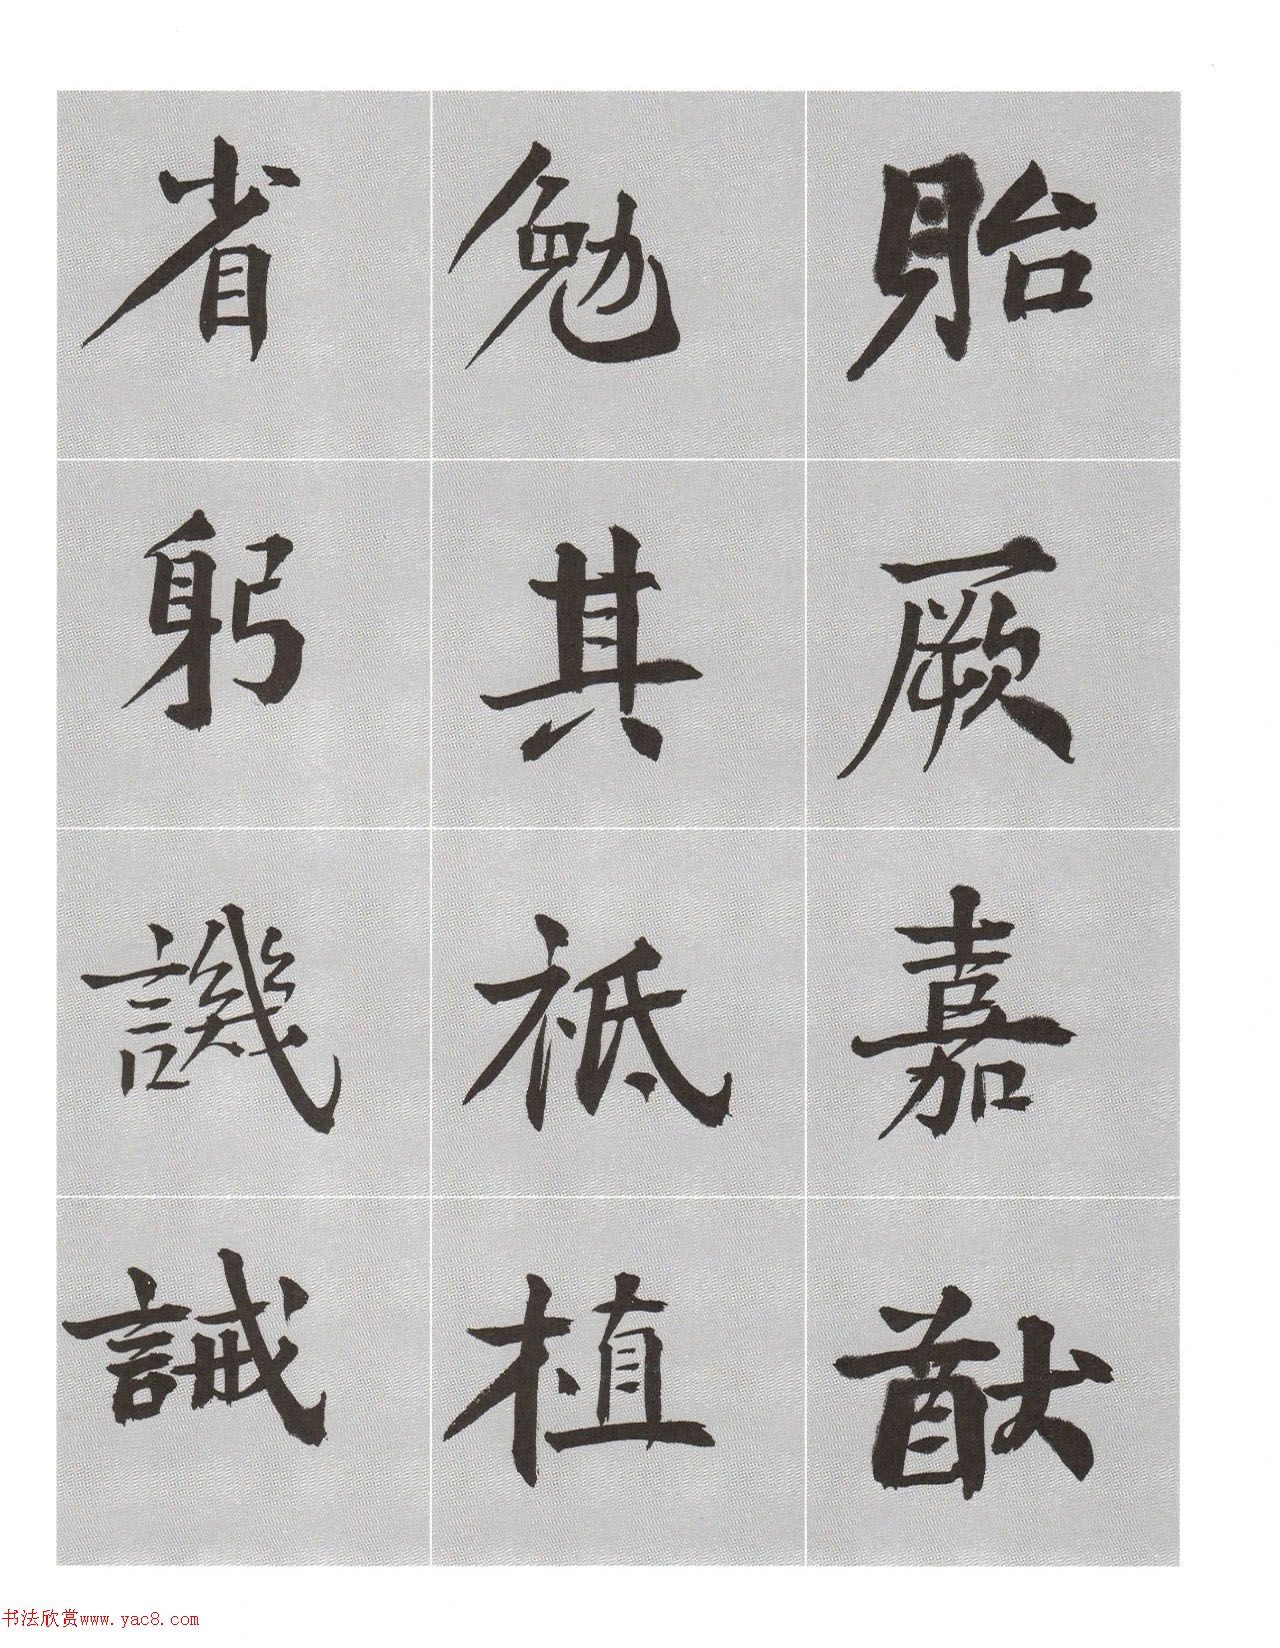 貽厥嘉猷
勉其祗植
省躬譏誡
书法欣赏www.yac8.com